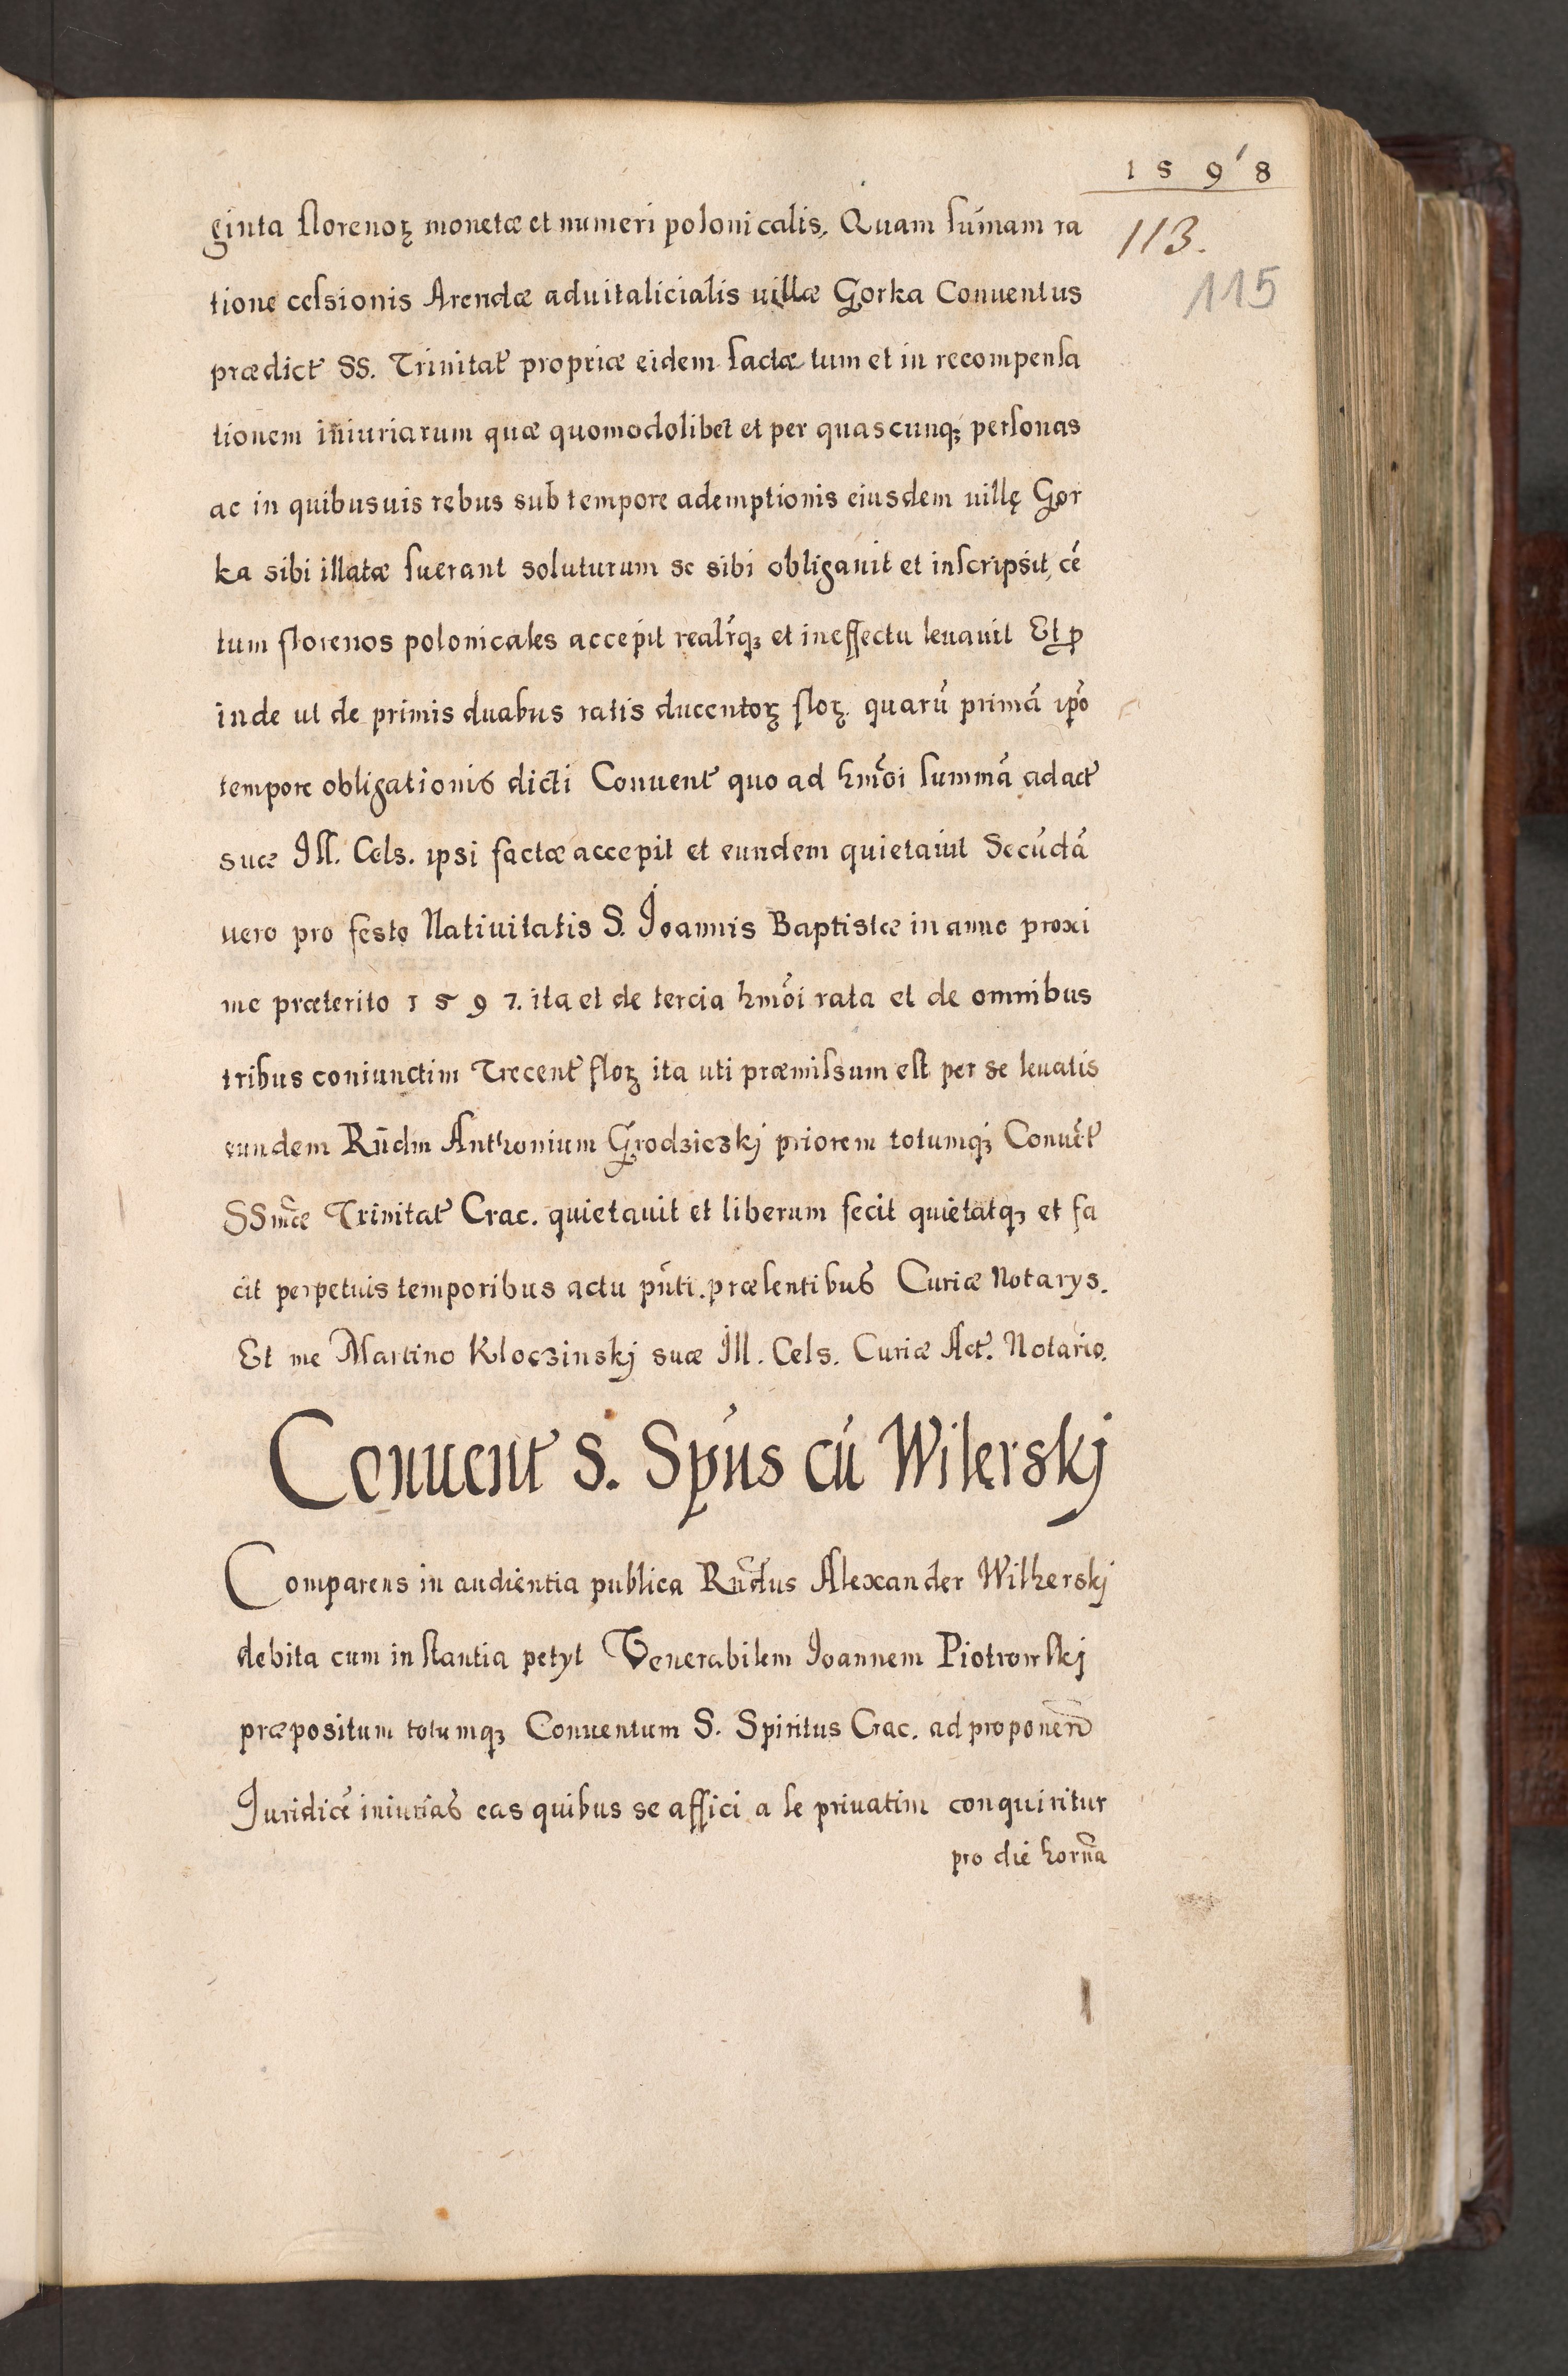 1598
113.
115
ginta florenoꝝ monetæ et numeri polonicalis, Quam sum̃am ra
tione cessionis Arendæ aduitalicialis uillæ Gorka Conuentus
prædict̃ SS. Trinitat̃ propriæ eidem factæ tum et in recompensa
tionem iniuriarum quæ quomodolibet et per quascunqꝫ personas
ac in quibusuis rebus sub tempore ademptionis eiusdem uillę Gor
ka sibi illatæ fuerant soluturum se sibi obligauit et inscripsit, cẽ
tum florenos polonicales accepit realr̃qꝫ et in effectu leuauit Et ꝑ
inde ut de primis duabus ratis ducentoꝝ floꝝ. quarũ primã ip̃o
tempore obligationis dicti Conuent̃ quo ad hmõi summã ad act̃
suæ Ill. Cels. ipsi factæ accepit et eundem quietauit Secũdã
uero pro festo Natiuitatis S. Joannis Baptistæ in anno proxi
me præterito 1597. ita et de tercia hmõi rata et de omnibus
tribus coniunctim Trecent̃ floꝝ ita uti præmissum est per se leuatis
eundem Rñdm Anthonium Grodziczkj priorem totumqꝫ Conuẽt̃
SSmæ̃ Trinitat̃ Crac. quietauit et liberum fecit quietatqꝫ et fa
cit perpetuis temporibus actu pñti. præsentibus Curiæ Notarys.
Et me Martino Kloczinskj suæ Ill. Cels. Curiæ Act̃. Notario.
Conuent̃ S. Spũs cũ Wilerskj
Comparens in audientia publica Rñdus Alexander Wilherskj
debita cum instantia petyt Venerabilem Joannem Piotrowskj
præpositum totumqꝫ Conuentum S. Spiritus Crac. ad proponen̄d
Juridicè iniurias eas quibus se affici a se priuatim conquiritur
pro die horña